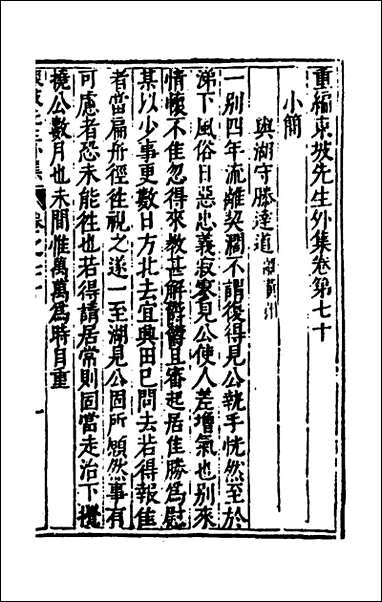 重編東坡先生外集卷第七十
小簡
與湖守滕達道
一别四年流離契濶不謂復得見公執手恍然至於
涕下風俗日惡忠義寂寥見公使人差增氣也别來
情懷不佳忽得來教甚解鬱鬱且審起居佳勝爲慰
某以少事更數日方北去宜興田已問去若得報佳
者當扁舟徑徃視之遂一至湖見公固所願然事有
可慮者恐未能徃也若得請居常則固當走治下攪
撓公數月也未間惟萬萬爲時自重